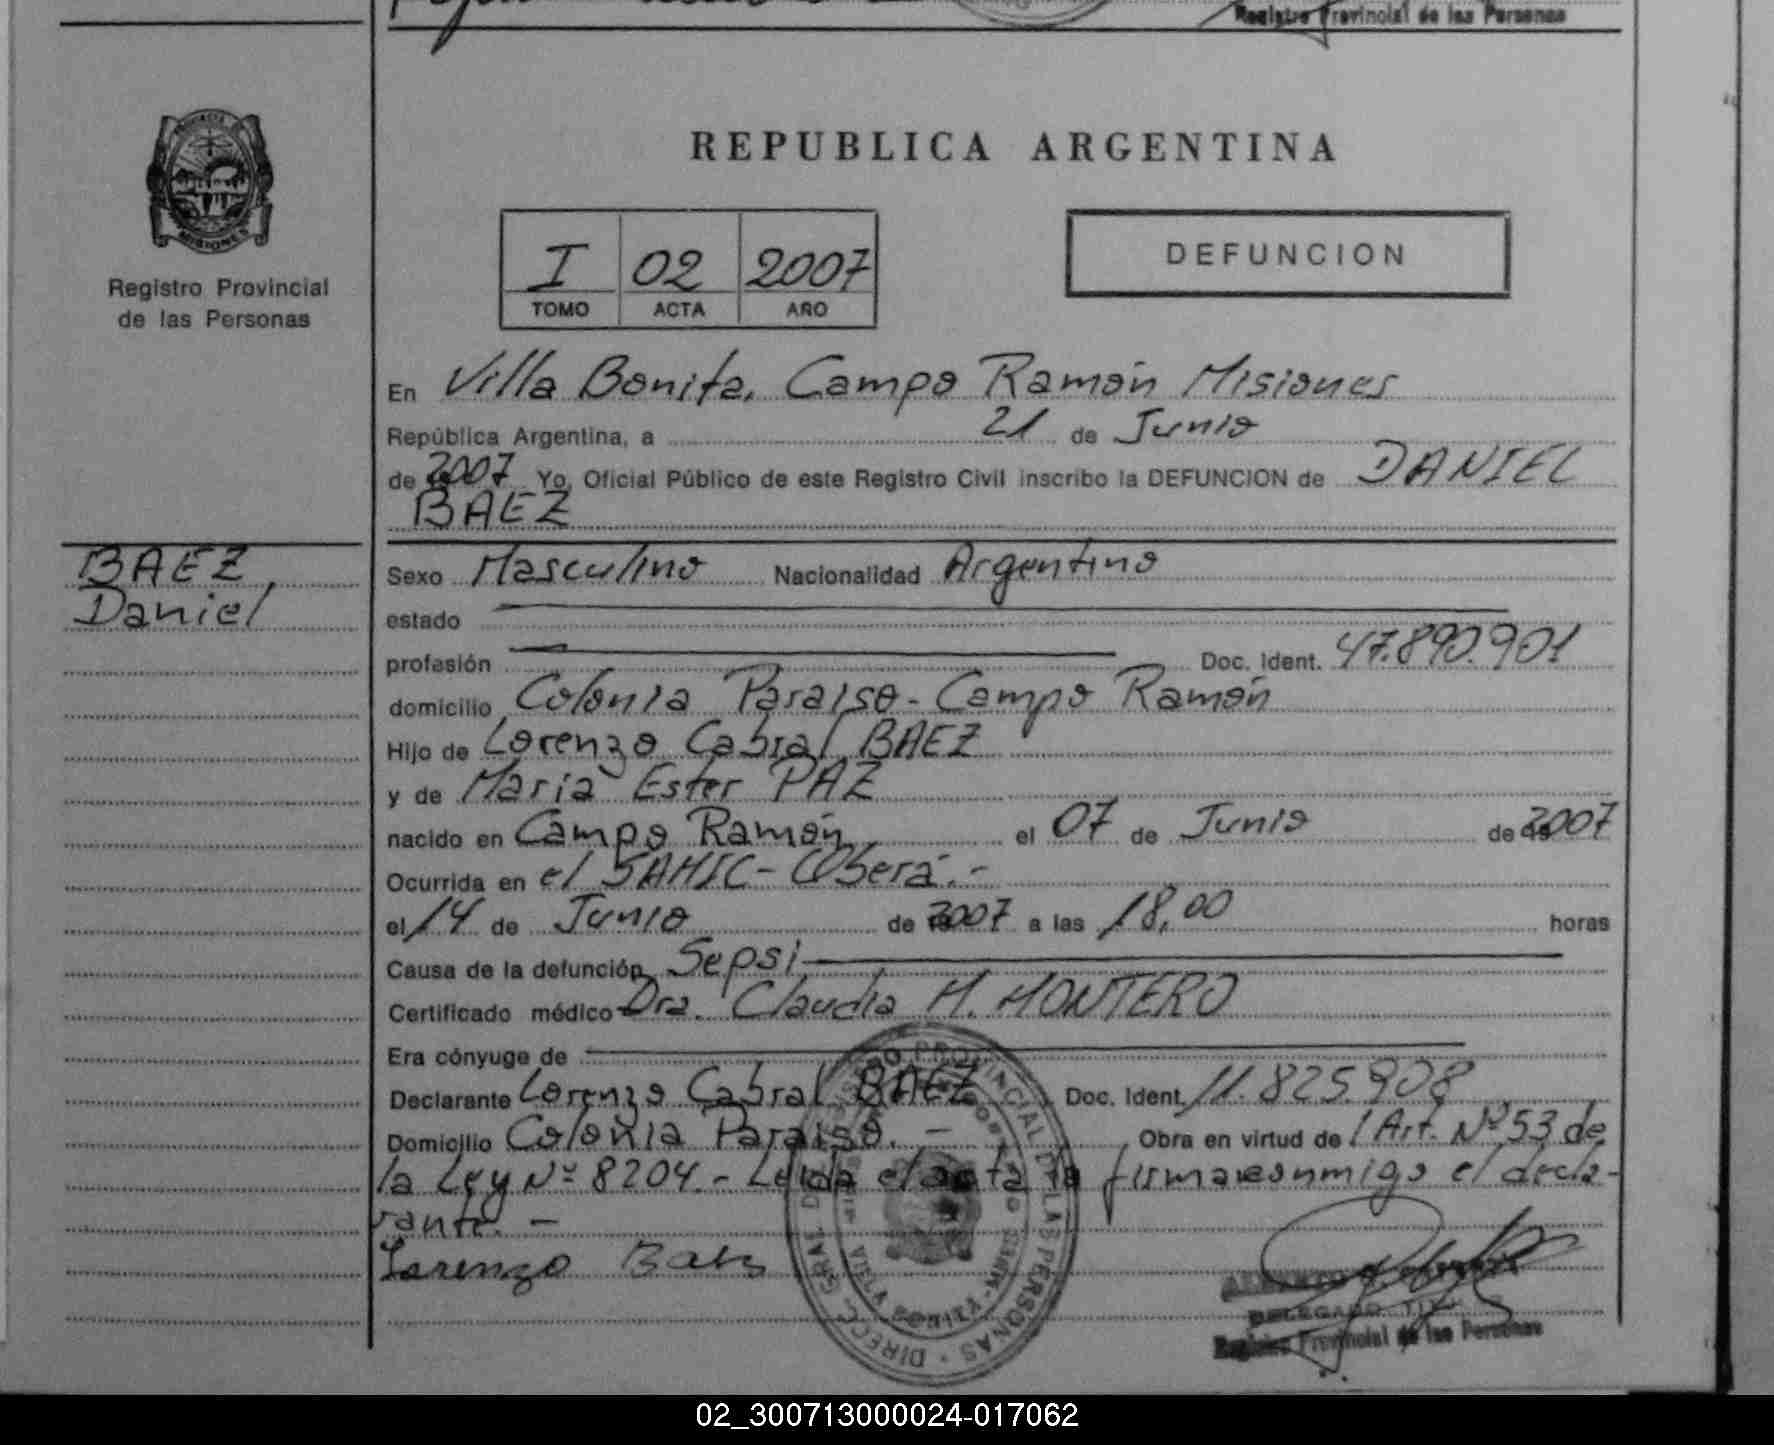 Registro Provincial de las Personas
PROVINCIA DE
MISIONES
Registro Provincial
de las Personas
REPUBLICA ARGENTINA
I 02 2007
TOMO ACTA AÑO
DEFUNCION
En Villa Bonita, Campo Ramón Misiones
República Argentina, a 21 de Junio
de 2007 Yo, Oficial Público de este Registro Civil inscribo la DEFUNCION de DANIEL
BAEZ
BAEZ,
Daniel
Sexo Masculino Nacionalidad Argentino
estado
profesión Doc. Ident. 47.890.901
domicilio Colonia Paraiso - Campo Ramón
Hijo de Lorenzo Cabral BAEZ
y de Maria Ester PAZ
nacido en Campo Ramón el 07 de Junio de 2007
Ocurrida en el SAMIC - Oberá.-
el 14 de Junio de 2007 a las 18,00 horas
Causa de la defunción Sepsi
Certificado médico Dra. Claudia M. MONTERO
Era cónyuge de
Declarante Lorenzo Cabral BAEZ Doc. Ident. 11.825.908
Domicilio Colonia Paraiso. - Obra en virtud de l Art. Nº 53 de
la Ley Nº 8204.- Leida el acta la firma conmigo el decla-
rante. -
Lorenzo Baez
DELEGADO
Registro Provincial de las Personas
PROVINCIAL DE LAS PERSONAS · DIRECC. GRAL. DE
02_300713000024-017062